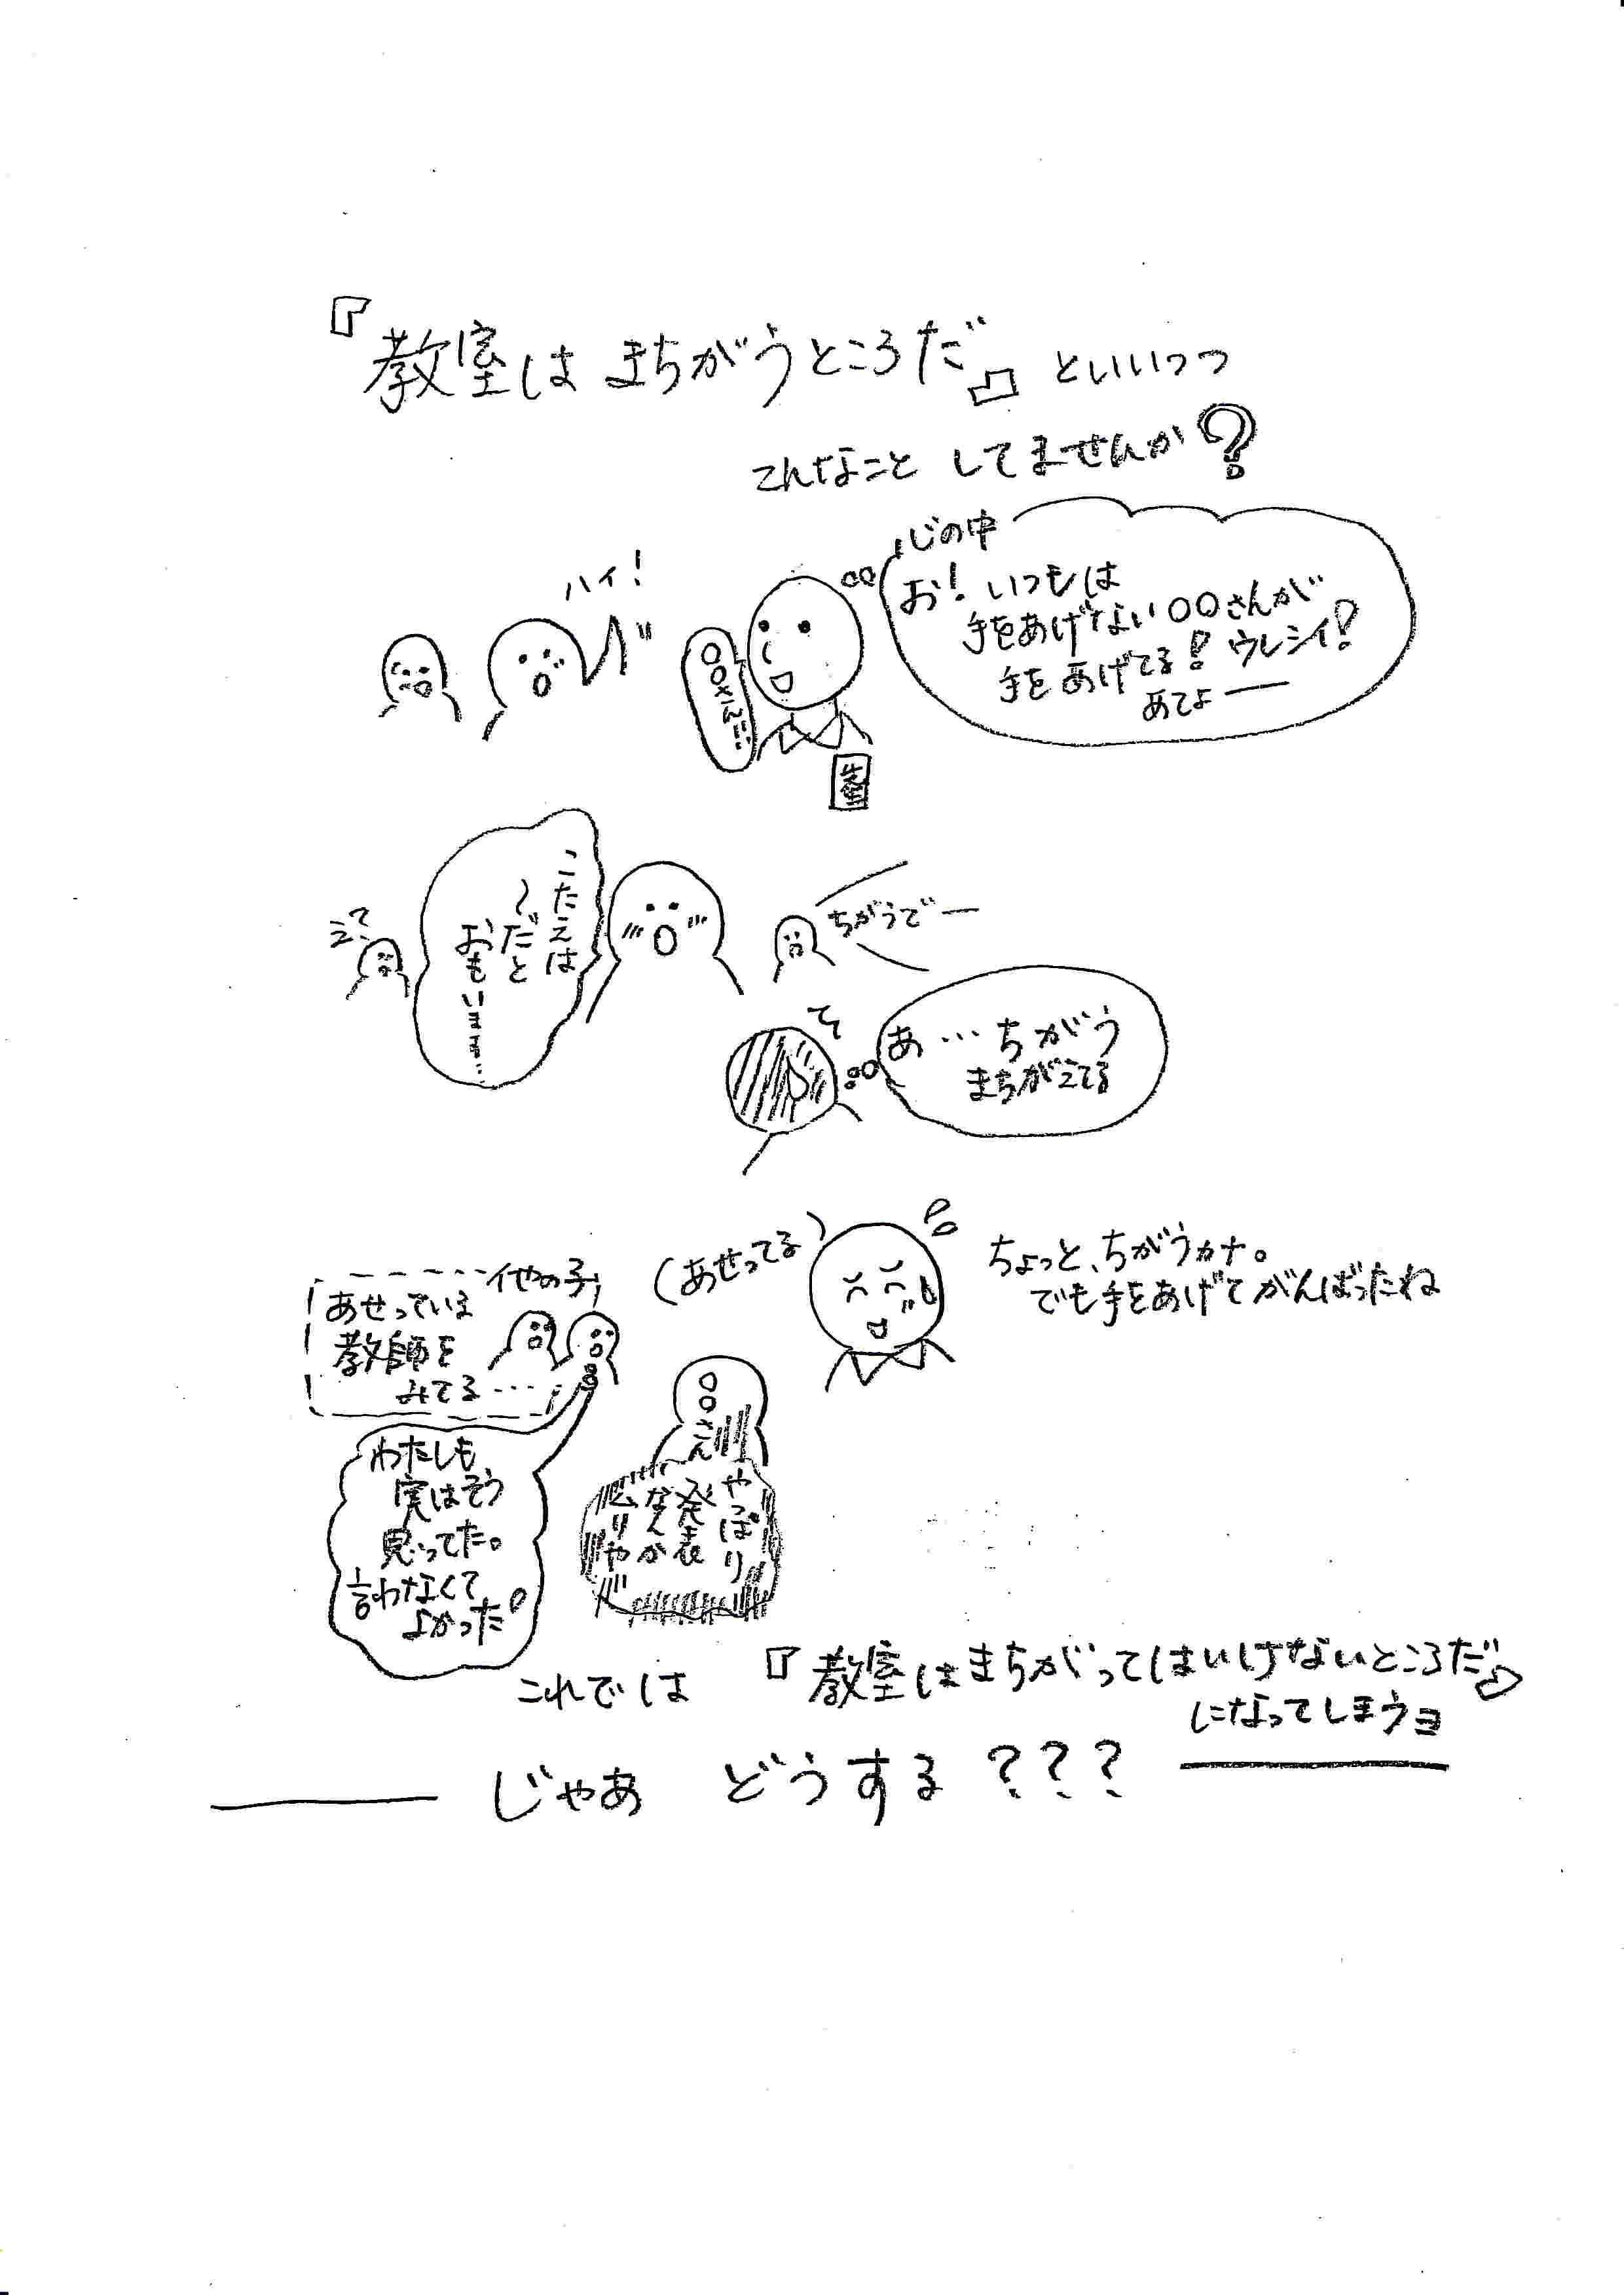 『教室は まちがうところだ』といいつつ
こんなこと してませんか？
心の中
お！いつもは
手をあげない〇〇さんが
手をあげてる！ウレシイ！
あてよー
ハイ！
〇〇さん
先生
こたえは
〜だと
おもいます…
ちがうでー
あ…ちがう
まちがえてる
(あせってる)
ちょっと、ちがうカナ。
でも手をあげてがんばったね
他の子
あせっている
教師を
みてる…
わたしも
実はそう
思ってた。
言わなくて
よかった！
〇〇さん
やっぱり
発表
なんか
ムリや
これでは 『教室はまちがってはいけないところだ』
になってしまうヨ
じゃあ どうする？？？